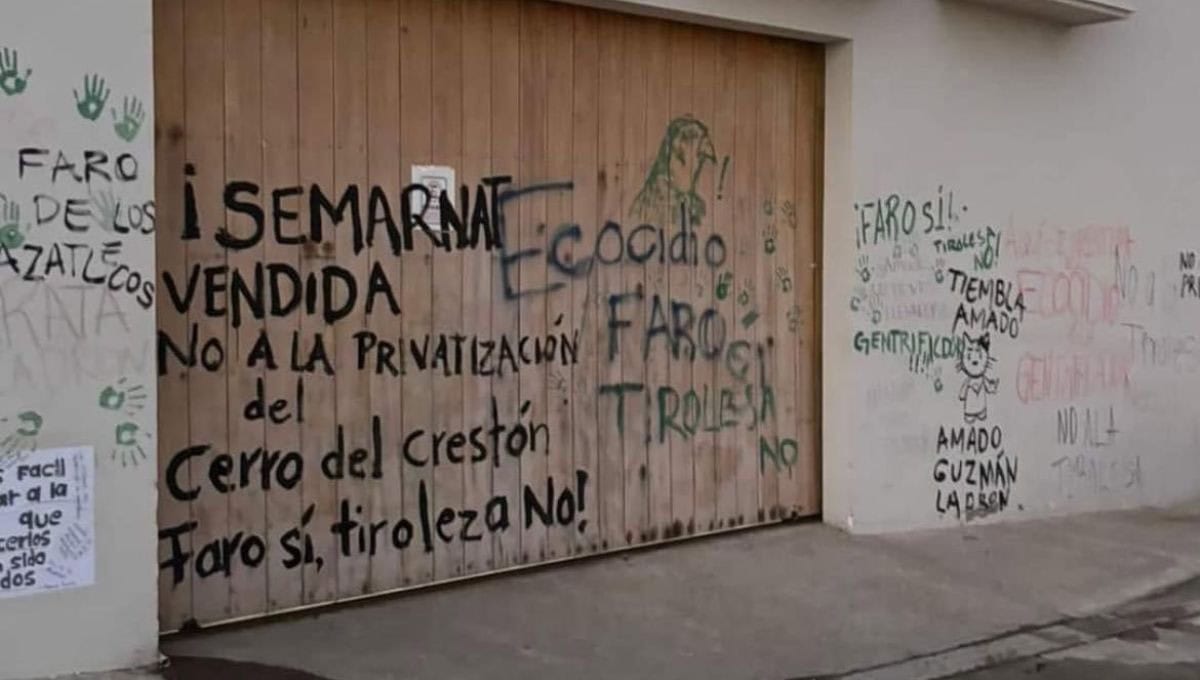 FARO
DE LOS
AZATLECOS
KATA
FACIL
ar a la
que
cerlos
sido
dos
¡SEMARNAT
VENDIDA
NO A LA PRIVATIZACIÓN
del
Cerro del crestón
Faro sí, tiroleza No!
Ecocidio
FARO SI
TIROLESA
NO
¡FARO SÍ!
TIROLESA
NO!
TIEMBLA
AMADO
GENTRIFICDOR
!!!!
AMADO
GUZMÁN
LADRON
ECOCIDIO
NO A LA
TIROLESA
NO